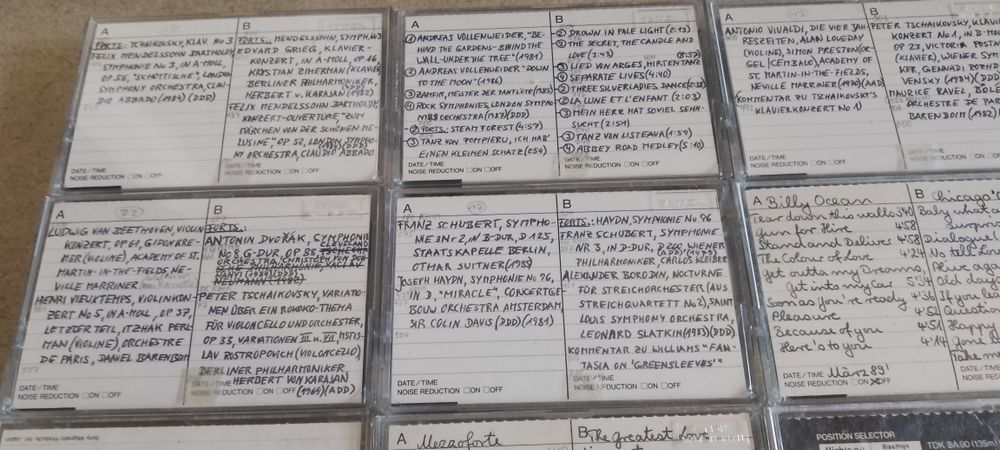 A
FORTS.: TSCHAIKOVSKY, KLAV. No 3
FELIX MENDELSSOHN BARTHOLDY,
SYMPHONIE No 3, IN A-MOLL,
OP. 56, "SCHOTTISCHE", LONDON
SYMPHONY ORCHESTRA, CLAU-
DIO ABBADO (1984) (DDD)
DATE/TIME
NOISE REDUCTION □ON □OFF
B
FORTS.: MENDELSSOHN, SYMPH. No 3
EDVARD GRIEG, KLAVIER-
KONZERT, IN A-MOLL, OP. 16
KRISTIAN ZIMERMAN (KLAVIER)
BERLINER PHILHARMONIKER,
HERBERT v. KARAJAN (1982)
(DDD)
FELIX MENDELSSOHN BARTHOLDY,
KONZERT-OUVERTURE "ZUM
MÄRCHEN VON DER SCHÖNEN ME-
LUSINE", OP 32, LONDON SYMPHO-
NY ORCHESTRA, CLAUDIO ABBADO
DATE/TIME
NOISE REDUCTION □ON □OFF
A
① ANDREAS VOLLENWEIDER, "BE-
HIND THE GARDENS-BEHIND THE
WALL-UNDER THE TREE" (1981)
② ANDREAS VOLLENWEIDER "DOWN
TO THE MOON" (1986)
③ ZAMFIR, MEISTER DER PANFLÖTE (1985)
④ ROCK SYMPHONIES, LONDON SYMPHO-
NIE ORCHESTRA (1987) (DDD)
② FORTS.: STEAM FOREST (4:57)
③ TANZ VON POMPIERU, ICH HAB'
EINEN KLEINEN SCHATZ (2:54)
DATE/TIME
NOISE REDUCTION □ON □OFF
B
② DROWN IN PALE LIGHT (2:13)
② THE SECRET, THE CANDLE AND
LOVE (3:43)
③ LIED VON ARGES, HIRTENTANZ
④ SEPARATE LIVES (4:40)
② THREE SILVER LADIES DANCE
② LA LUNE ET L'ENFANT (2:03)
③ MEIN HERZ HAT SOVIEL SEHN-
SUCHT (2:51)
③ TANZ VON LISTEAVA (1:59)
④ ABBEY ROAD MEDLEY (5:10)
DATE/TIME
NOISE REDUCTION □ON □OFF
A
ANTONIO VIVALDI, DIE VIER JAH-
RESZEITEN, ALAN LOVEDAY
(VIOLINE), SIMON PRESTON (OR-
GEL/CEMBALO), ACADEMY OF
ST. MARTIN-IN-THE-FIELDS,
NEVILLE MARRINER (1970) (AAD)
(KOMMENTAR ZU TSCHAIKOVSKY'S
KLAVIERKONZERT No 1)
DATE/TIME
NOISE REDUCTION □ON □OFF
B
PETER TSCHAIKOVSKY, KLAVIER-
KONZERT No 1, IN B-MOLL
OP 23, VICTORIA POSTNI
KOVA (KLAVIER), WIENER SYM
KER, GENNADI ROZHD
VENSKY (1984) (DDD)
MAURICE RAVEL, BOLE
ORCHESTRE DE PARI
BARENBOIM (1982)
A
LUDWIG VAN BEETHOVEN, VIOLIN
KONZERT, OP. 61, GIDON KRE-
MER (VIOLINE), ACADEMY OF ST.
MARTIN-IN-THE-FIELDS, NE-
VILLE MARRINER
HENRI VIEUXTEMPS, VIOLINKON-
ZERT No 5, IN A-MOLL, OP. 37,
LETZTER TEIL, ITZHAK PERL-
MAN (VIOLINE), ORCHESTRE
DE PARIS, DANIEL BARENBOIM
DATE/TIME
NOISE REDUCTION □ON □OFF
B
FORTS.:
ANTONIN DVOŘÁK, SYMPHONIE
No 8, G-DUR, OP 88, CLEVELAND
ORCHESTRA, CHRISTOPH VON DOH-
PETER TSCHAIKOVSKY, VARIATIO-
NEN ÜBER EIN ROKOKO-THEMA
FÜR VIOLONCELLO UND ORCHESTER,
OP 33, VARIATIONEN III u. VII, MSTIS-
LAV ROSTROPOVICH (VIOLONCELLO)
BERLINER PHILHARMONIKER,
HERBERT VON KARAJAN
(1969) (ADD)
DATE/TIME
NOISE REDUCTION □ON □OFF
A
FRANZ SCHUBERT, SYMPHO-
NIE Nr 2, IN B-DUR, D 125,
STAATSKAPELLE BERLIN,
OTMAR SUITNER (1983)
JOSEPH HAYDN, SYMPHONIE No 96,
IN D, "MIRACLE", CONCERTGE-
BOUW ORCHESTRA AMSTERDAM,
SIR COLIN DAVIS (DDD) (1981)
DATE/TIME
NOISE REDUCTION □ON □OFF
B
FORTS.: HAYDN, SYMPHONIE No 96
FRANZ SCHUBERT, SYMPHONIE
NR 3, IN D-DUR, D 200, WIENER
PHILHARMONIKER, CARLOS KLEIBER
ALEXANDER BORODIN, NOCTURNE
FÜR STREICHORCHESTER (AUS
STREICHQUARTETT No 2), SAINT
LOUIS SYMPHONY ORCHESTRA,
LEONARD SLATKIN (1983) (DDD)
KOMMENTAR ZU WILLIAMS "FAN-
TASIA ON 'GREENSLEEVES'"
DATE/TIME
NOISE REDUCTION □ON □OFF
A
Billy Ocean
Tear down this walls
Gun for Hire 4'58
Stand and Deliver 4'58
The Colour of Love 4'24
Get outta my Dreams,
Get into my Car 5'34
Soon as you're ready 4'36
Pleasure 4'52
Because of you 4'51
Here's to you 4'14
DATE/TIME März 89!
NOISE REDUCTION □ON ☒OFF
B
Chicago
Baby what a
Surprise
Dialogue
No tell
Alive aga
Old days
If you le
Question
Happy
Gone
Take me
Sony Magnetic Products Inc. Japan
A
Mezzoforte
B
The greatest Love
POSITION SELECTOR
TDK SA90 (135m)